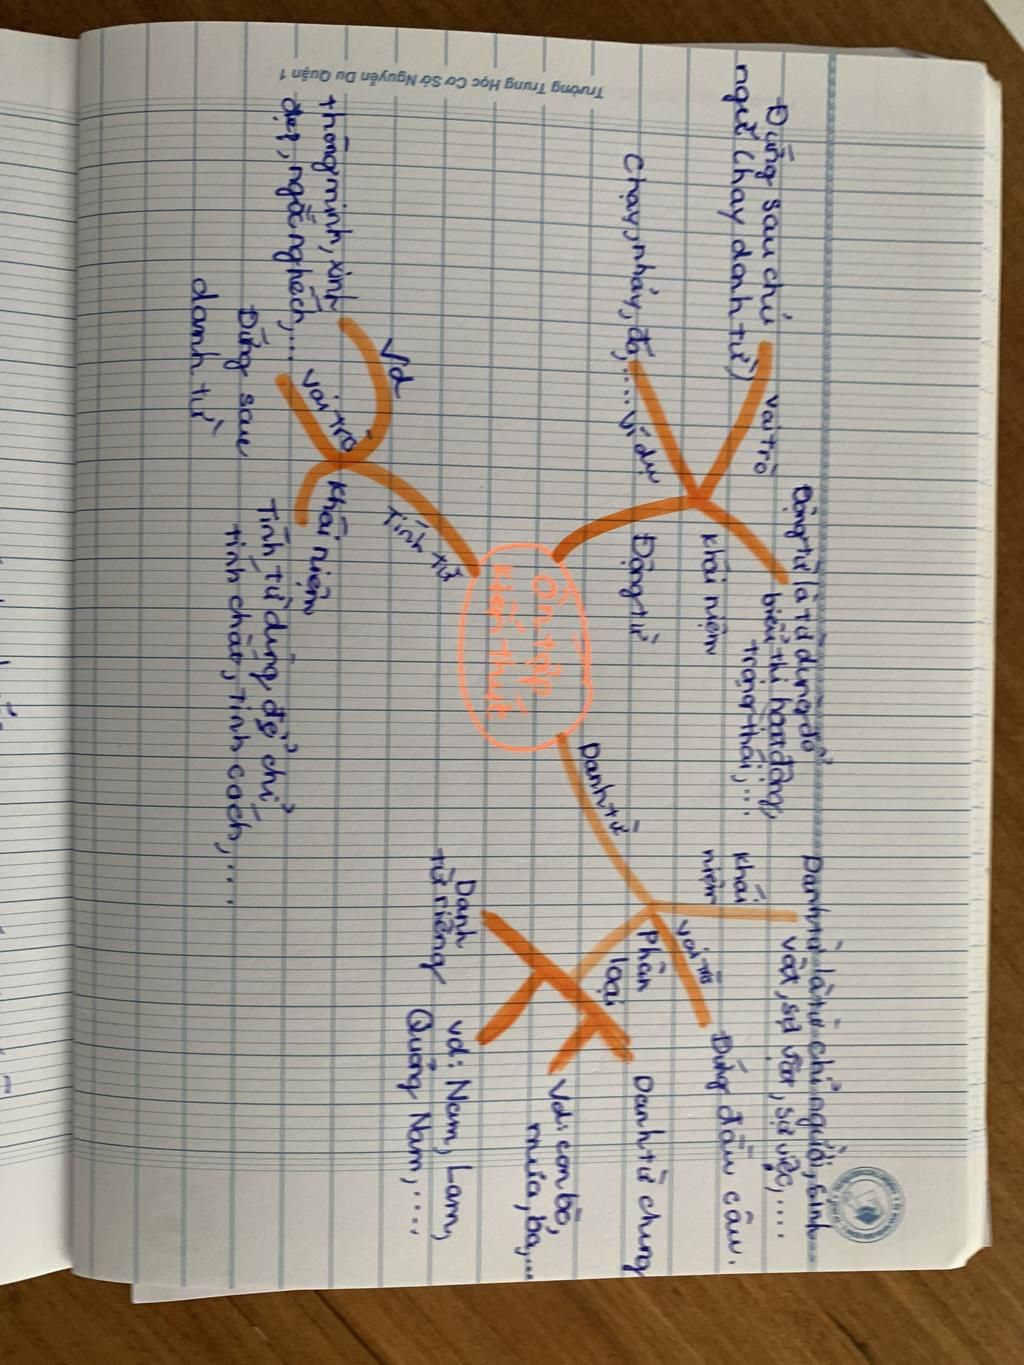 Trường Trung Học Cơ Sở Nguyễn Du Quận 1
Ôn tập
kiến thức
Động từ
khái niệm
Động từ là từ dùng để
biểu thị hoạt động,
trạng thái,...
vai trò
Đứng sau chủ
ngữ (hay danh từ)
ví dụ
Chạy, nhảy, đá,....
Danh từ
khái
niệm
Danh từ là từ chỉ người, sinh
vật, sự vật, sự việc,....
vai trò
Đứng đầu câu.
Phân
loại
Danh từ chung
Vd: con bò,
mưa, ba,...
Danh
từ riêng
vd: Nam, Lam,
Quảng Nam,....
Tính từ
Vd
thông minh, xinh
đẹp, ngốc nghếch,...
vai trò
Đứng sau
danh từ
khái niệm
Tính từ dùng để chỉ
tính chất, tính cách,...